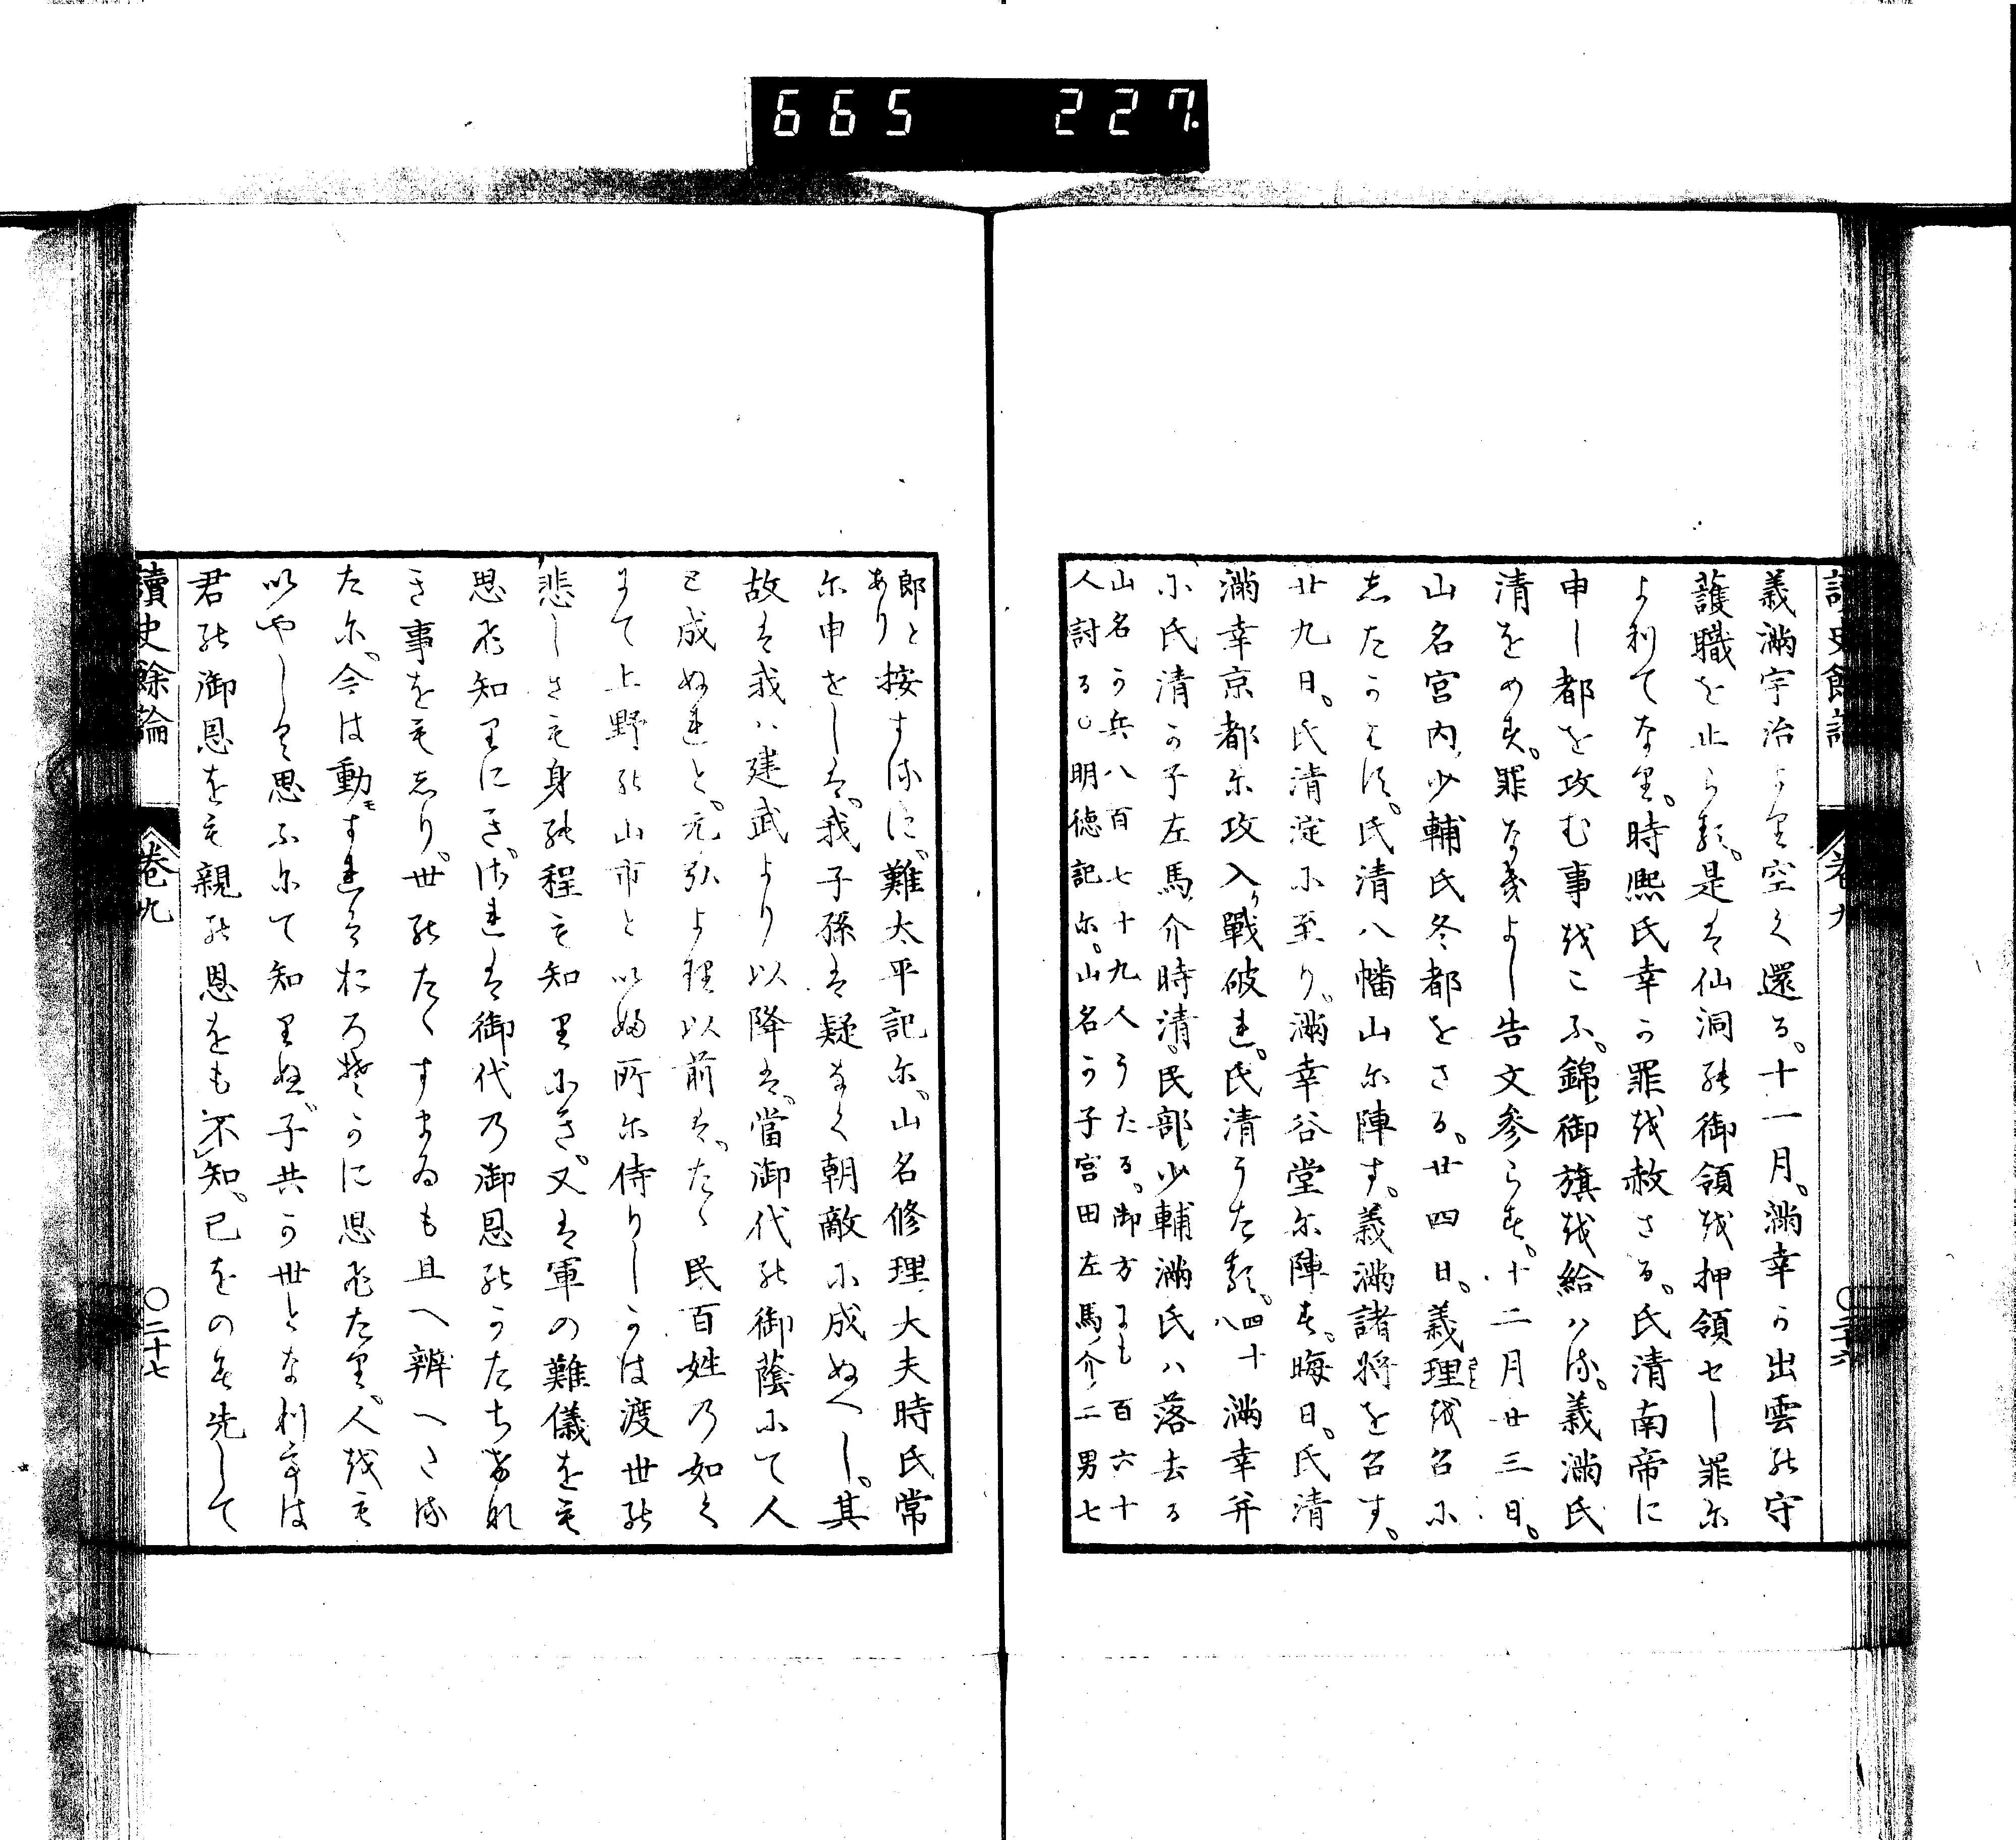 665 227.
義滿宇治より空く還る。十一月。滿幸か出雲の守
護職を止らる。是は仙洞の御領を押領せし罪に
よりてなり。時熙氏幸か罪を赦さる。氏清南帝に
申し都を攻む事をこふ。錦御旗を給ハる。義滿氏
清をめす。罪なきよし告文参らす。十二月廿三日。
山名宮内少輔氏冬都をさる。廿四日。義理を召に
したかはす。氏清八幡山に陣す。義滿諸將を召す。
廿九日。氏清淀に至り。滿幸谷堂に陣す。晦日。氏清
滿幸京都に攻入。戰破れ。氏清うたる。四十八滿幸并
に氏清か子左馬介時清。民部少輔滿氏ハ落去る
山名か兵八百七十九人うたる。御方にも百六十
人討る○明德記に。山名か子宮田左馬介二男七
讀史餘論 卷九 ○二十六
郎と
あり
按するに。難太平記に。山名修理大夫時氏常
に申をしは。我子孫は疑なく朝敵に成ぬへし。其
故は我ハ建武より以降は。當御代の御蔭にて人
と成ぬれと。元弘より以前は。たゝ民百姓の如く
にて上野の山市といふ所に侍りしかは渡世の
悲しさも身の程も知りにき。又は軍の難儀をも
思ひ知りにき。されは御代の御恩のうたちけれ
き事をもしり。世のたゝすまゐも且ハ辨へさる
たに。今は動もすれはおろそかに思ひたり。人をも
いやしく思ふにて知りぬ。子共か世となり‥は
君の御恩をも親の恩をも不知。已をのみ先して
讀史餘論 卷九 ○二十七